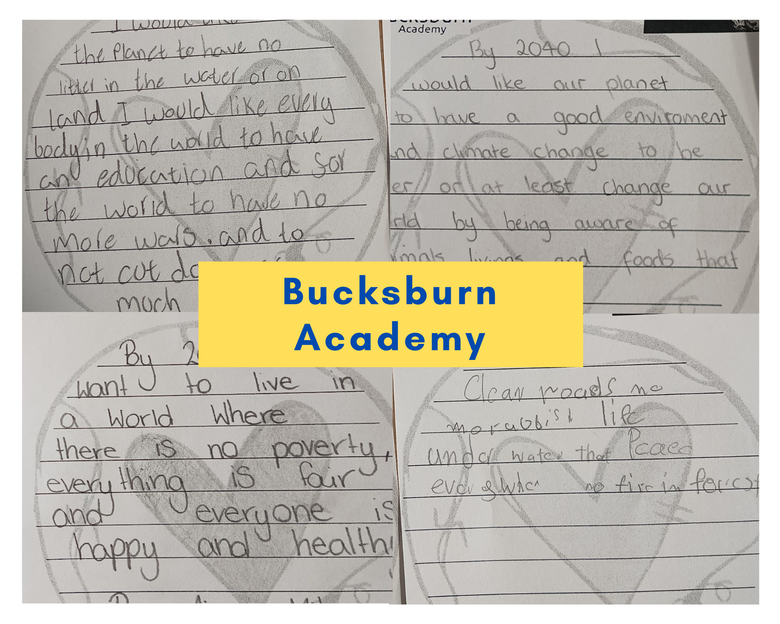 I would like
the planet to have no
litter in the water or on
land I would like every
body in the world to have
an education and for
the world to have no
more wars. and to
not cut do
much
Academy
By 2040 I
would like our planet
to have a good enviroment
nd climate change to be
er or at least change our
rld by being aware of
imals livings and foods that
Bucksburn
Academy
By 2
want to live in
a world where
there is no poverty,
everything is fair
and everyone is
happy and health
Clean roads no
life
under water that
no fire in